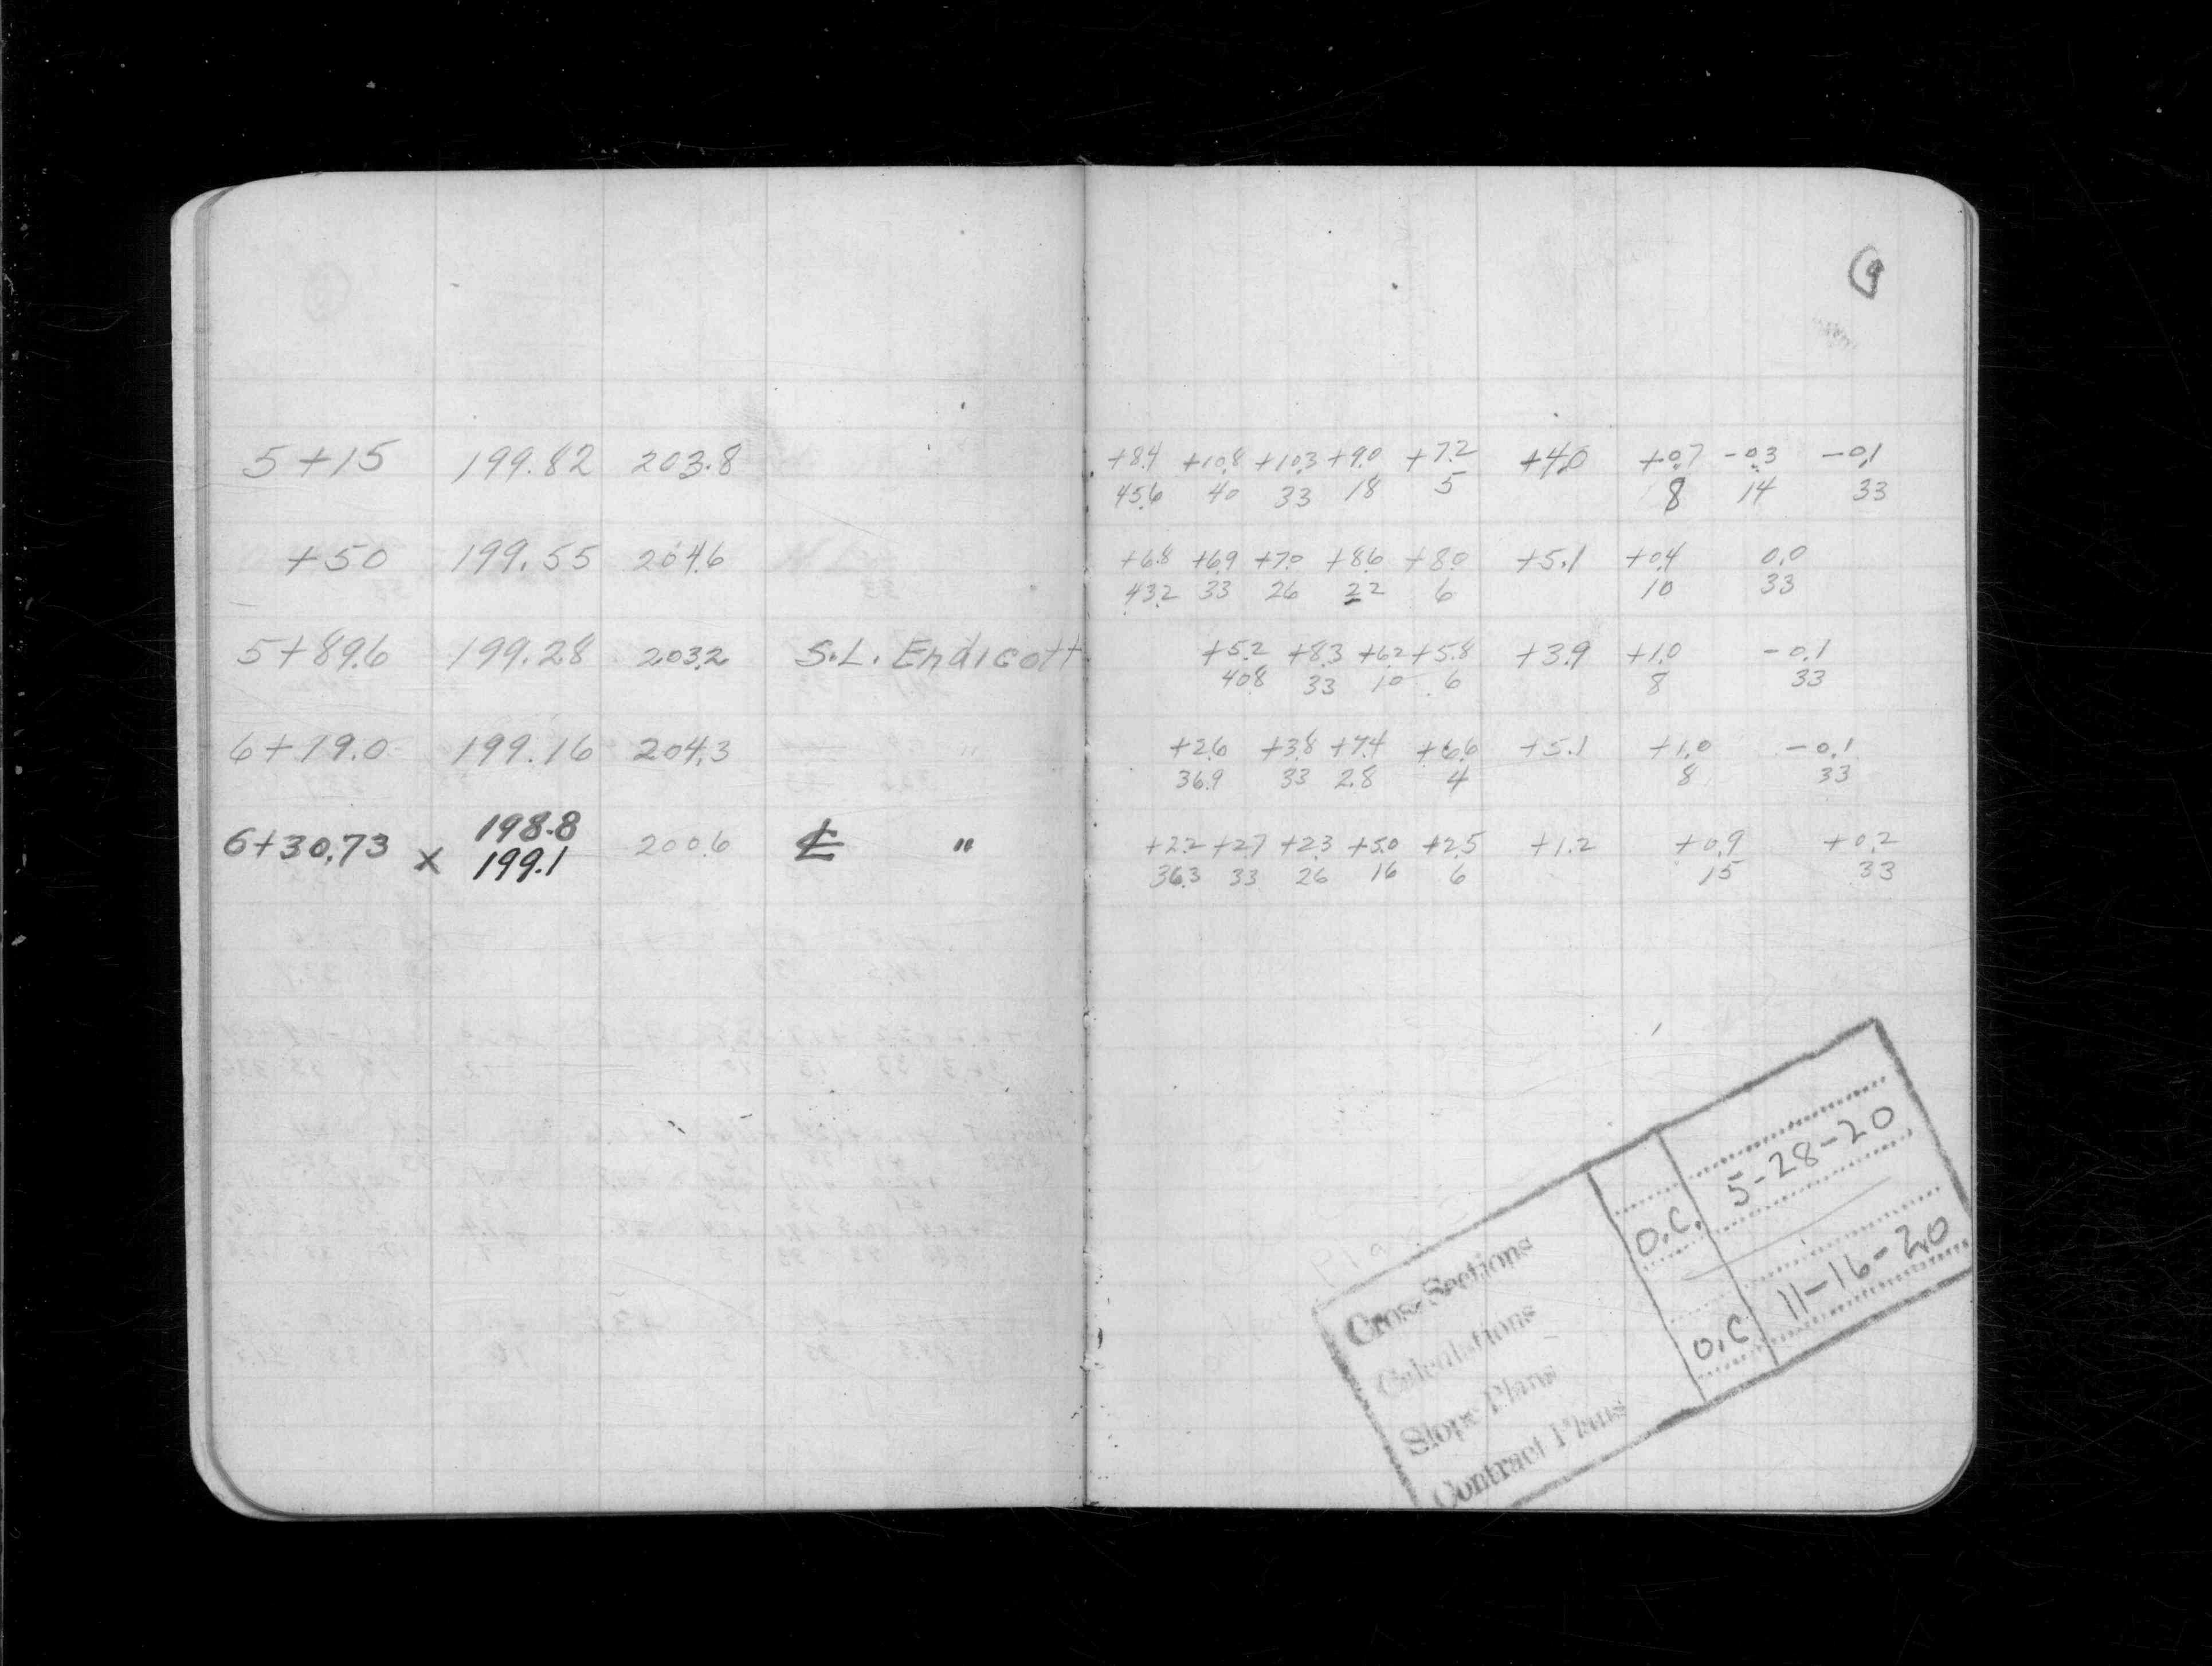 9
5+15 199.82 203.8 +8.4 +10.8 +10.3 +9.0 +7.2 +4.0 +0.7 -0.3 -0.1
45.6 40 33 18 5 8 14 33
+50 199.55 204.6 +6.8 +6.9 +7.0 +8.6 +8.0 +5.1 +0.4 0.0
43.2 33 26 22 6 10 33
5+89.6 199.28 203.2 S.L. Endicott +5.2 +8.3 +6.2 +5.8 +3.9 +1.0 -0.1
40.8 33 10 6 8 33
6+19.0 199.16 204.3 " +2.6 +3.8 +7.4 +6.6 +5.1 +1.0 -0.1
36.9 33 28 4 8 33
198.8
6+30.73 x 199.1 200.6 ℄ " +2.2 +2.7 +2.3 +5.0 +2.5 +1.2 +0.9 +0.2
36.3 33 26 16 6 15 33
Cross-Sections O.C. 5-28-20
Calculations
Slope Plans O.C. 11-16-20
Contract Plans